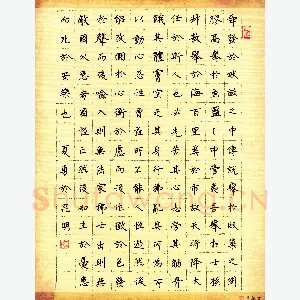 舜發於畎畝之中傅說舉於版築之間
膠鬲舉於魚鹽之中管夷吾舉於士孫
叔敖舉於海百里奚舉於市故天將降大
任於斯人也必先苦其心志勞其筋骨
餓其體膚空乏其身行拂亂其所為所
以動心忍性曾益其所不能人恒過然後
能改困於心衡於慮而後作徵於色發
於聲而後喻入則無法家拂士出則無
敵國外患者國恒亡然後知生於憂患
而死於安樂也 夏勇於昆明